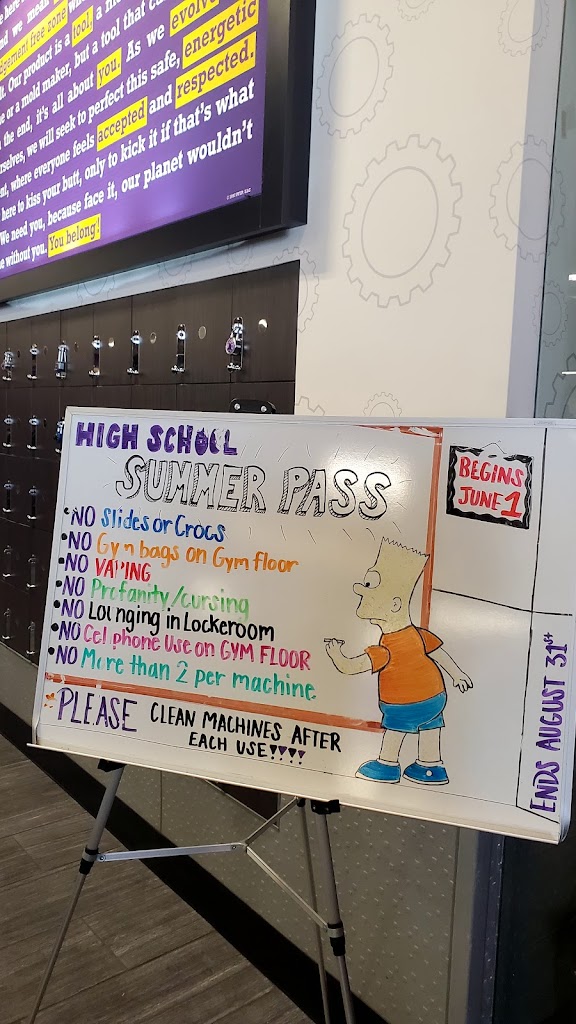 and we mean
gement free zone
tool, a mo
lt. Our product is a
e or a mold maker, but a tool that ca
the end, it's all about you. As we evolve
rselves, we will seek to perfect this safe, energetic
nt, where everyone feels accepted and respected.
here to kiss your butt, only to kick it if that's what
We need you, because face it, our planet wouldn't
e without you. You belong!
HIGH SCHOOL
SUMMER PASS
BEGINS
JUNE 1
•NO Slides or Crocs
•NO Gym bags on Gym floor
•NO VAPING
•NO Profanity/cursing
•NO Lounging in Lockeroom
•NO Cel phone Use on GYM FLOOR
•NO More than 2 per machine
PLEASE CLEAN MACHINES AFTER
EACH USE!!!!
ENDS AUGUST 31st